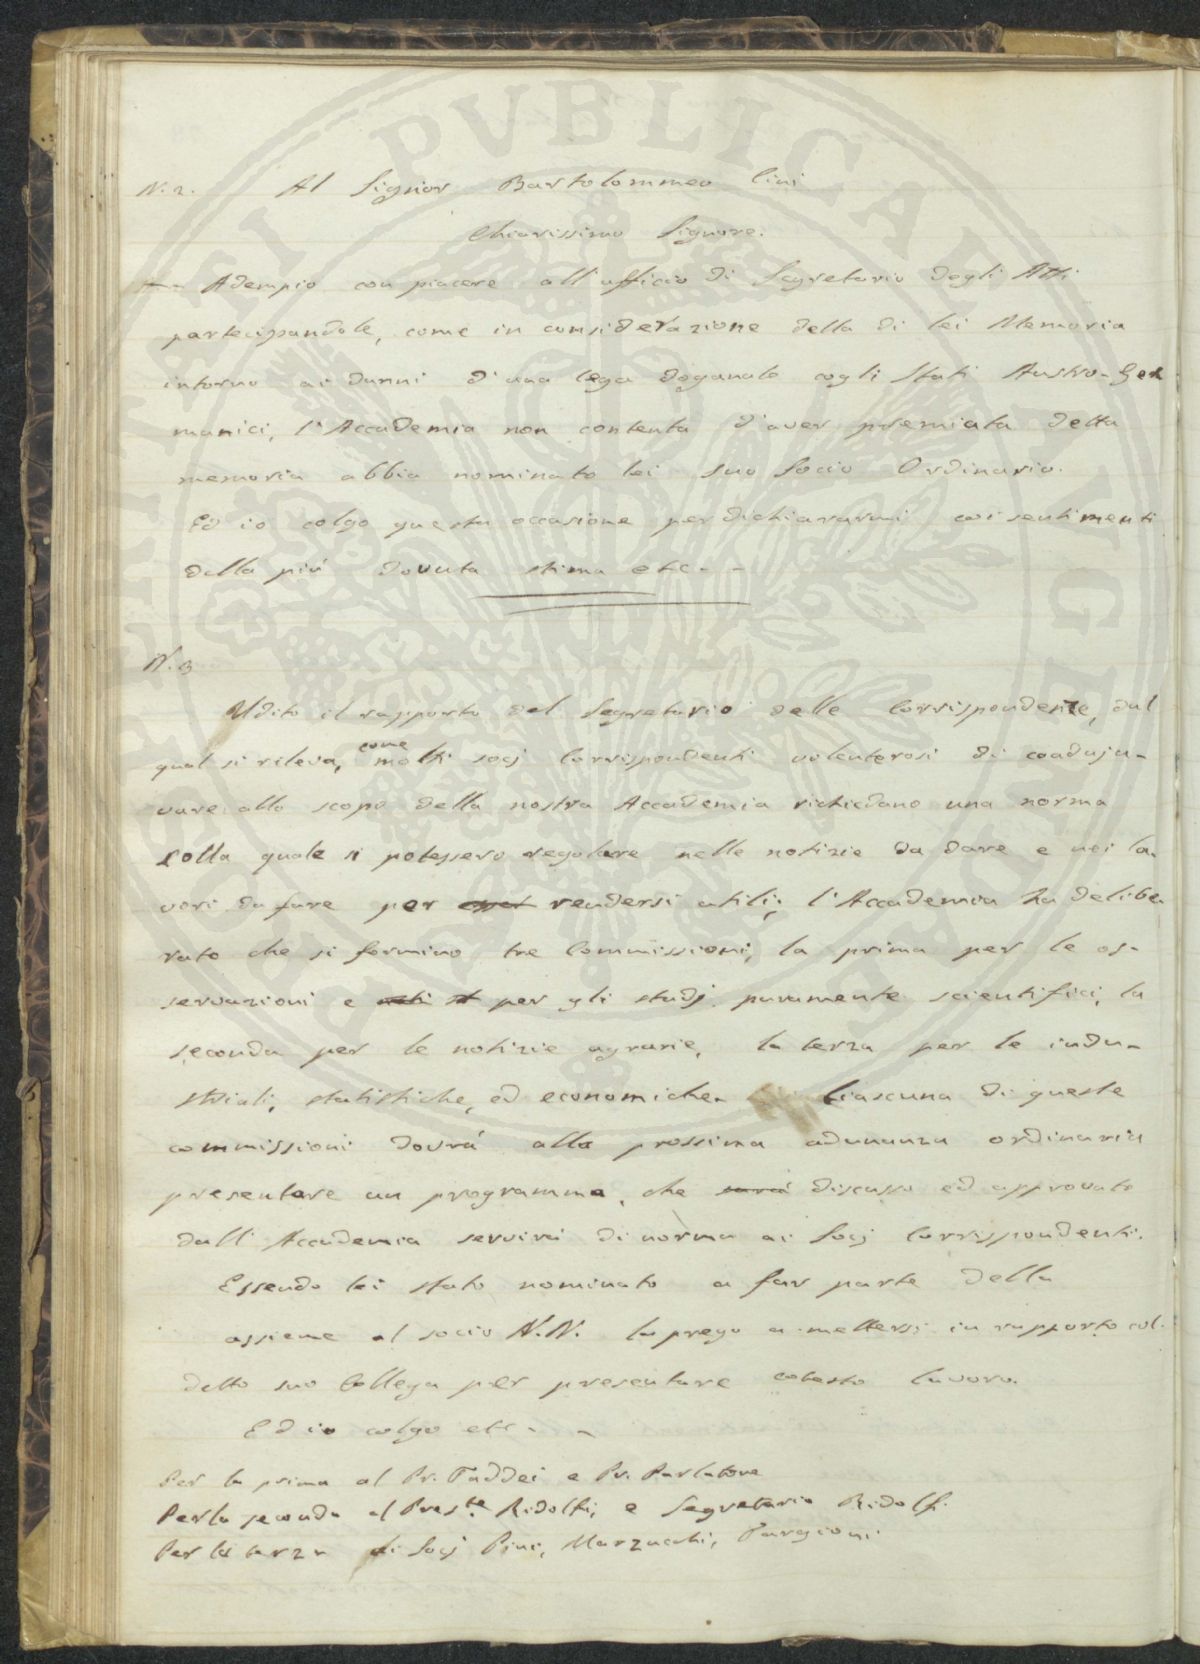 N. 2. Al Signor Bartolommeo Cini
Chiarissimo Signore.
Adempio con piacere all'ufficio di Segretario degli Atti
partecipandole, come in considerazione della di lei Memoria
intorno ai danni d'una lega doganale cogli Stati Austro-Ger
manici, l'Accademia non contenta d'aver premiata detta
memoria abbia nominato lei suo Socio Ordinario.
Ed io colgo questa occasione per dichiararmi coi sentimenti
della più dovuta stima etc - -
N. 3
Udito il rapporto del Segretario delle Corrispondenze, dal
qual si rileva, come molti socj Corrispondenti volenterosi di coadju-
vare allo scopo della nostra Accademia richiedano una norma
colla quale si potessero regolare nelle notizie da dare e nei la-
vori da fare per esser rendersi utili; l'Accademia ha delibe-
rato che si formino tre Commissioni, la prima per le os-
servazioni e per gli studj puramente scientifici, la
seconda per le notizie agrarie, la terza per le indu-
striali, statistiche, ed economiche. Ciascuna di queste
commissioni dovrà alla prossima adunanza ordinaria
presentare un programma, che sarà discusso ed approvato
dall'Accademia servirà di norma ai Socj Corrispondenti.
Essendo lei stato nominato a far parte della
assieme al socio N.N. la prego a mettersi in rapporto col
detto suo Collega per presentare cotesto lavoro.
Ed io colgo etc - -
Per la prima al Pr. Taddei e Pr. Parlatore
Per la seconda al Pres.te Ridolfi, e Segretario Ridolfi.
Per la terza ai Socj Pini, Marzucchi, Targioni
PVBLICAE